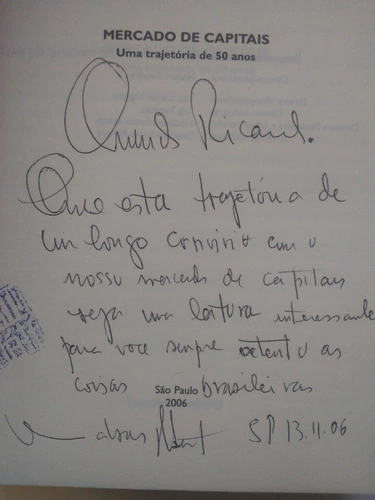 MERCADO DE CAPITAIS
Uma trajetória de 50 anos
Querido Ricard.
Que esta trajetória de
um longo convívio com o
nosso mercado de capitais
seja uma leitura interessante
para voce sempre atento as
coisas brasileiras
São Paulo
2006
SP 13.11.06